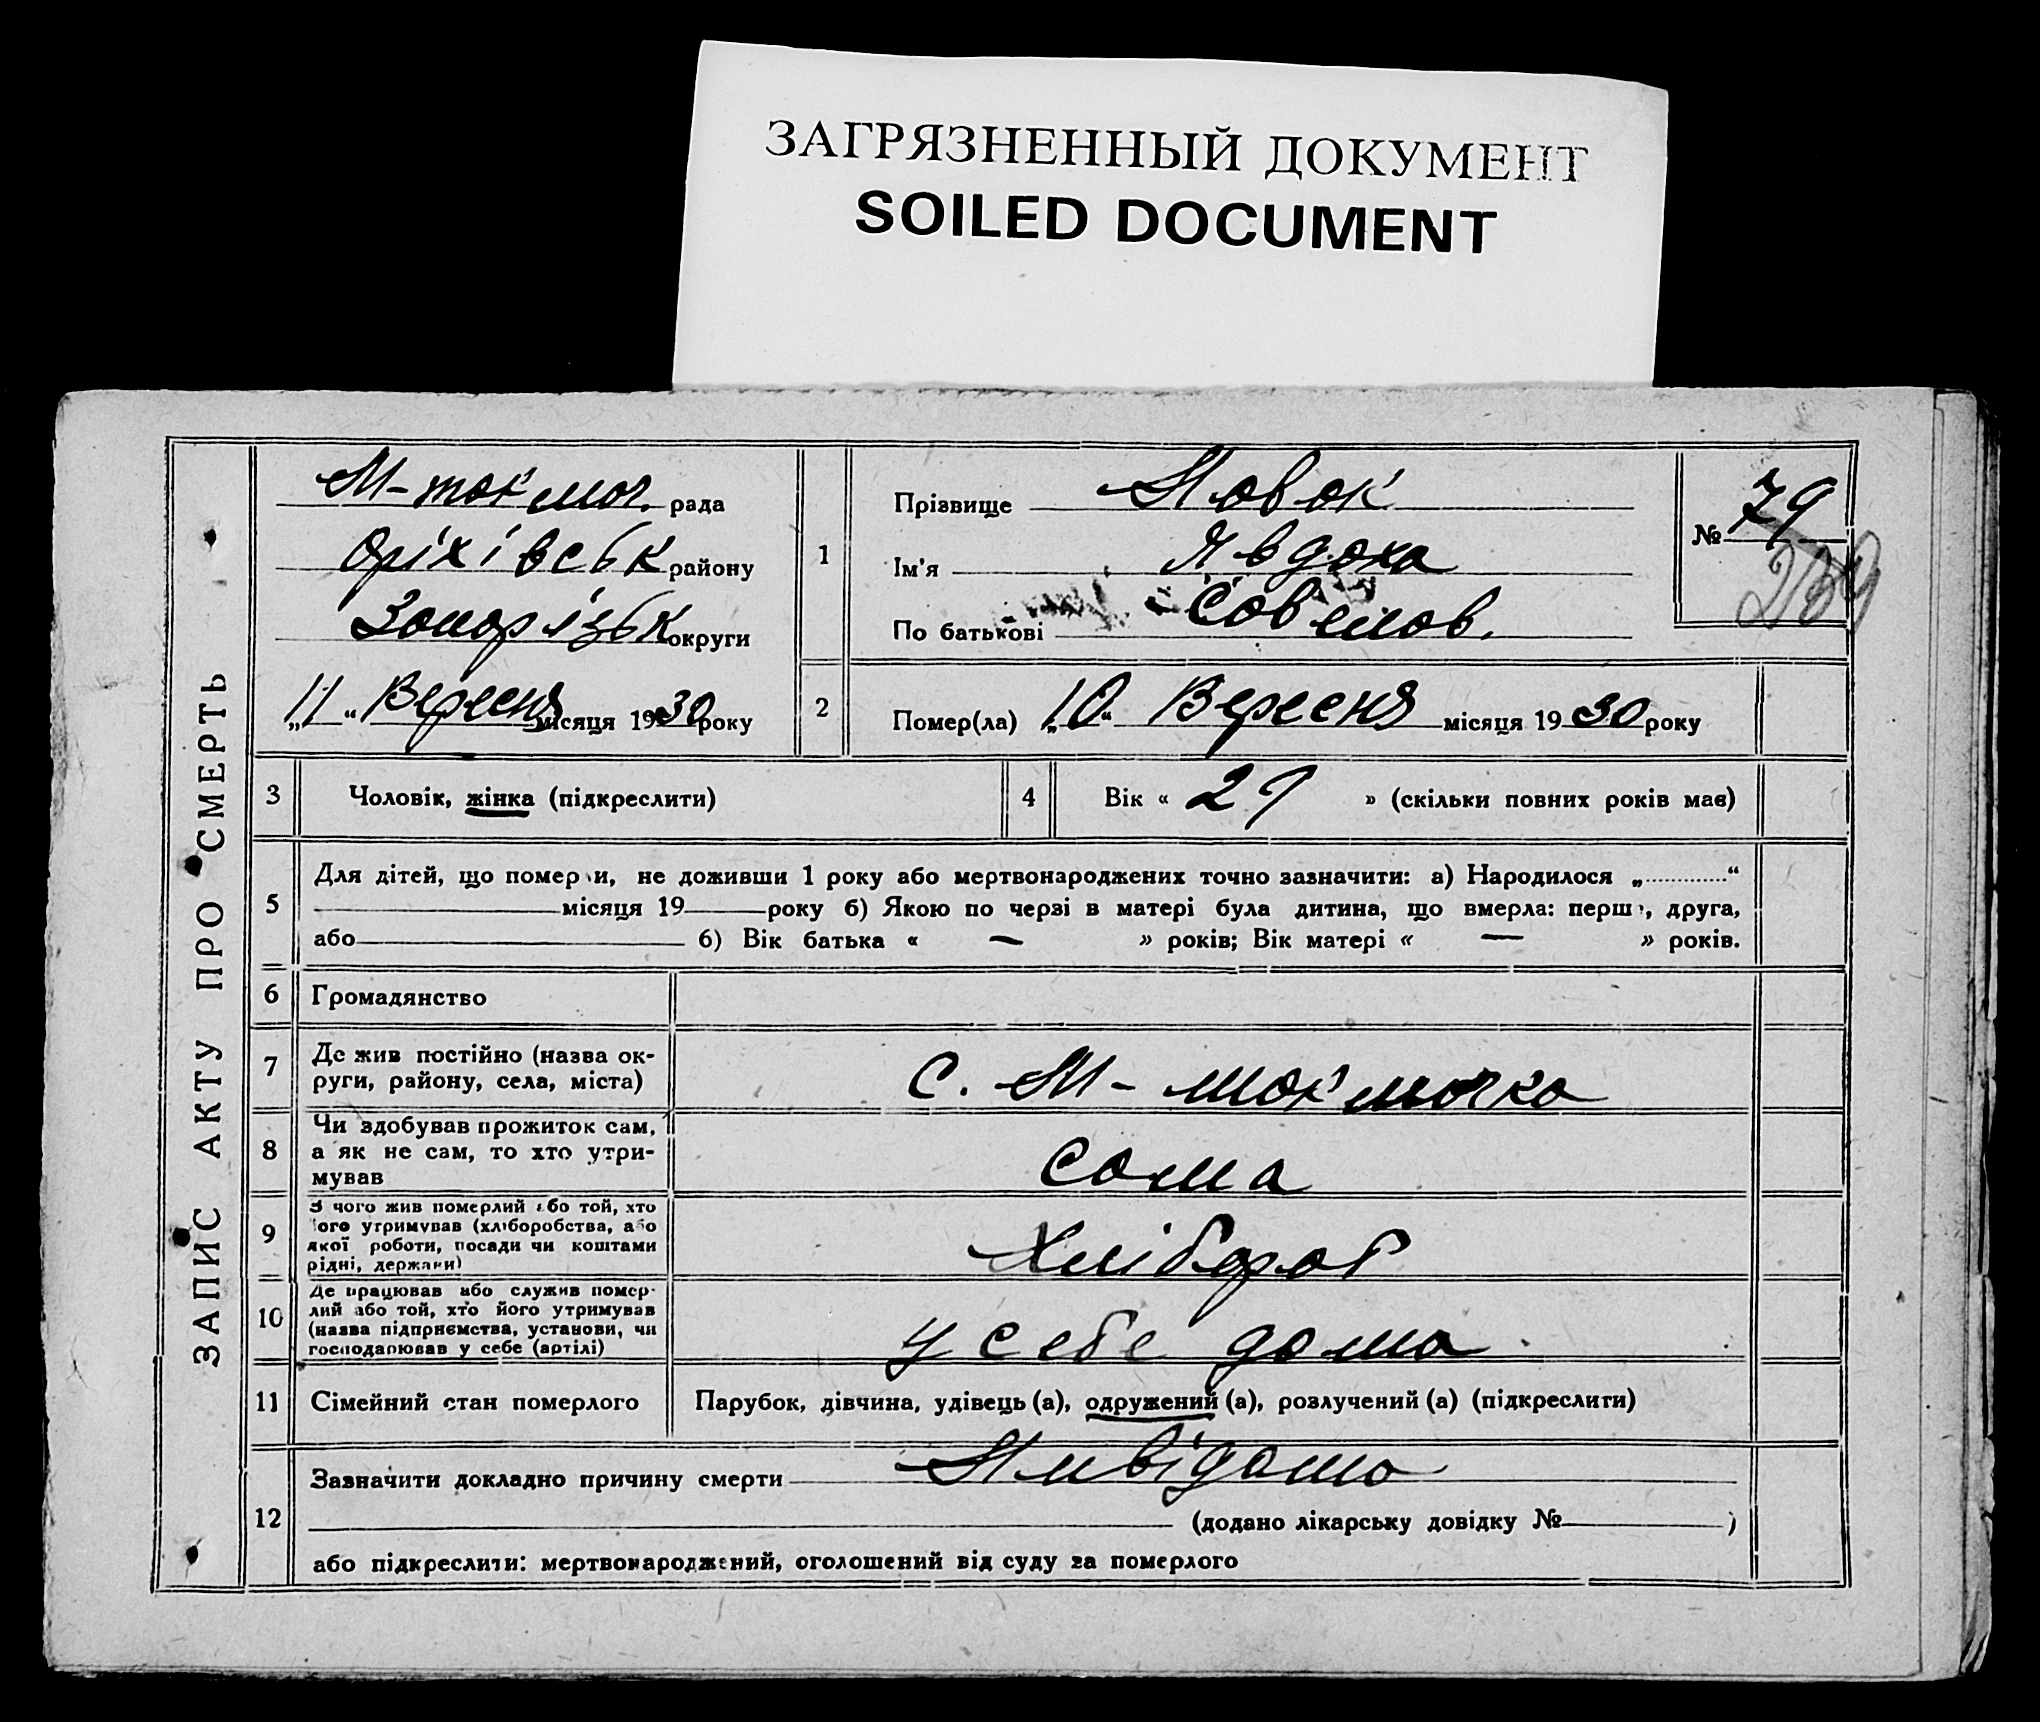 ЗАГРЯЗНЕННЫЙ ДОКУМЕНТ
SOILED DOCUMENT
ЗАПИС АКТУ ПРО СМЕРТЬ
М-токмач. рада
Оріхівськ району
Запоріэьк округи
„11“ Вересня місяця 1930 року
1
Прізвище Новак
Ім'я Явдоха
По батькові Савелов.
№ 79
239
2
Помер(ла) „10“ Вересня місяця 1930 року
3 Чоловік, жінка (підкреслити)
4 Вік « 29 » (скільки повних років має)
5
Для дітей, що померли, не доживши 1 року або мертвонароджених точно зазначити: а) Народилося „............“
місяця 19 року б) Якою по черзі в матері була дитина, що вмерла: перша, друга,
або б) Вік батька « — » років; Вік матері « — » років.
6 Громадянство
7 Де жив постійно (назва ок-
руги, району, села, міста)
с. М-токмачка
8 Чи здобував прожиток сам,
а як не сам, то хто утри-
мував
сама
9 З чого жив померлий або той, хто
його утримував (хліборобства, або
якої роботи, посади чи коштами
рідні, держави)
Хлібороб
10 Де працював або служив помер-
лий або той, хто його утримував
(назва підприємства, установи, чи
господарював у себе (артілі)
у себе дома
11 Сімейний стан померлого
Парубок, дівчина, удівець (а), одружений (а), розлучений (а) (підкреслити)
12
Зазначити докладно причину смерти Нивідомо
(додано лікарську довідку № )
або підкреслити: мертвонароджений, оголошений від суду за померлого